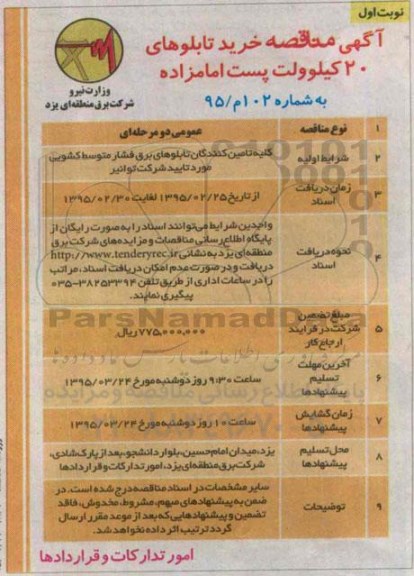 نوبت اول
آگهی مناقصه خرید تابلوهای
۲۰ کیلوولت پست امامزاده
به شماره ۱۰۲م/۹۵
وزارت نیرو
شرکت برق منطقه‌ای یزد
۱ نوع مناقصه عمومی دو مرحله‌ای
۲ شرایط اولیه کلیه تامین کنندگان تابلوهای برق فشار متوسط کشویی
مورد تایید شرکت توانیر
۳ زمان دریافت
اسناد از تاریخ ۱۳۹۵/۰۲/۲۵ لغایت ۱۳۹۵/۰۲/۳۰
۴ نحوه دریافت
اسناد واجدین شرایط می‌توانند اسناد را به صورت رایگان از
پایگاه اطلاع رسانی مناقصات و مزایده‌های شرکت برق
منطقه‌ای یزد به نشانی http://www.tenderyrec.ir
دریافت و در صورت عدم امکان دریافت اسناد، مراتب
را در ساعات اداری از طریق تلفن ۳۸۲۵۳۳۹۴-۰۳۵
پیگیری نمایند.
۵ مبلغ تضمین
شرکت در فرایند
ارجاع کار ۷۷۵,۰۰۰,۰۰۰ ریال
۶ آخرین مهلت
تسلیم
پیشنهادها ساعت ۹:۳۰ روز دوشنبه مورخ ۱۳۹۵/۰۳/۲۴
۷ زمان گشایش
پیشنهادها ساعت ۱۰ روز دوشنبه مورخ ۱۳۹۵/۰۳/۲۴
۸ محل تسلیم
پیشنهادها یزد، میدان امام حسین، بلوار دانشجو، بعد از پارک شادی،
شرکت برق منطقه‌ای یزد، امور تدارکات و قراردادها
۹ توضیحات سایر مشخصات در اسناد مناقصه درج شده است. در
ضمن به پیشنهادهای مبهم، مشروط، مخدوش، فاقد
تضمین و پیشنهادهایی که بعد از موعد مقرر ارسال
گردد ترتیب اثر داده نخواهد شد.
امور تدارکات و قراردادها
ParsNamadData